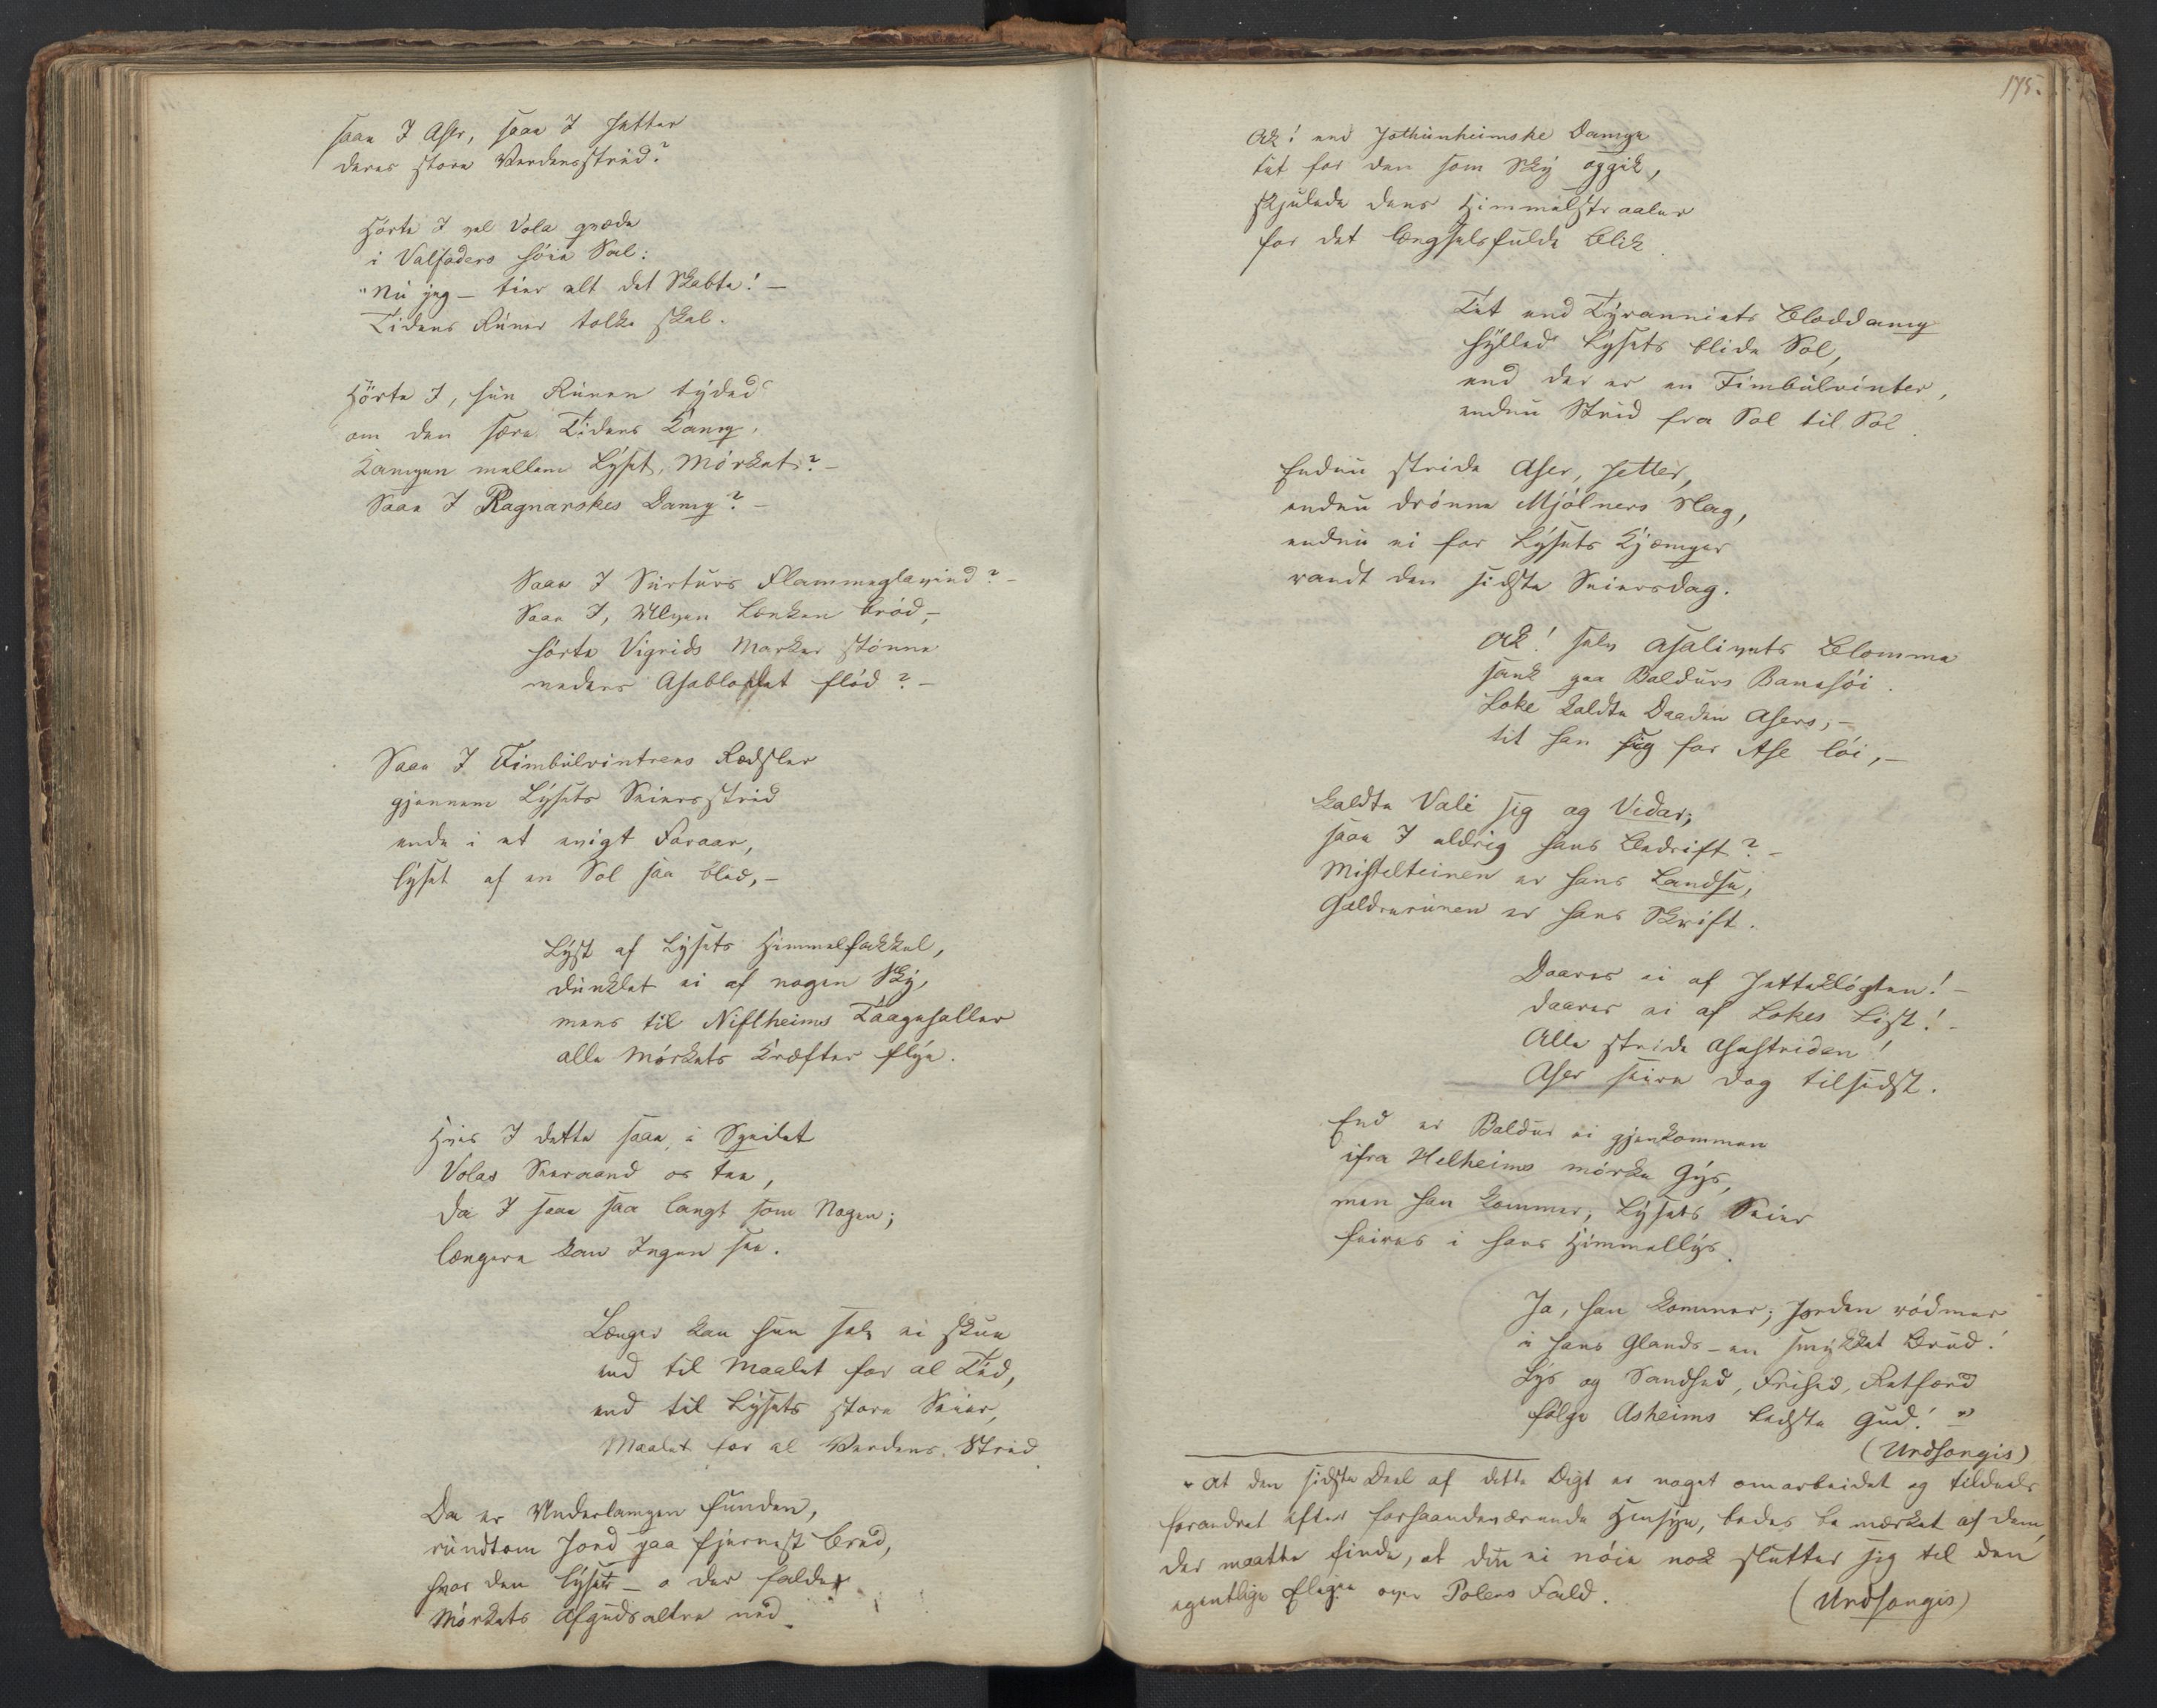 saae I Aser, saae I Jetter
deres store Verdensstrid?
Hörte I vel Vola qvæde
i Valfaders höie Sal:
"Nu jeg – tier alt det Skabte! –
Tidens Runer tolke skal.
Hörte I, hun Runen tyded
om den sære Tidens Kamp,
Kampen mellem Lyset, Mörket? –
Saae I Ragnarokes Damp? –
Saae I Surturs Flammeglavind? –
Saae I, Ulven Lænken bröd, –
hörte Vigrids Marker stönne
medens Asablodet flöd? –
Saae I Fimbulvintrens Rædsler
gjennem Lysets Seiersstrid
ende i et evigt Foraar,
lyset af en Sol saa blid, –
Lyst af Lysets Himmelfakkel,
dunklet ei af nogen Sky,
mens til Niflheims Taagehaller
alle Mörkets Kræfter flye.
Hvis I dette saae, i Speilet
Volas Seeraand os tee,
da I saae saa langt som Nogen;
længere kan Ingen see.
Længer kan hun selv ei skue
end til Maalet for al Tid,
end til Lysets store Seier,
Maalet for al Verdens Strid.
Da er Underlampen funden,
rundtom Jord paa fjerneste Bred,
hvor den lyser – o der falder
Mörkets Afgudsaltre ned.
175.
Ak! end Jothunheimske Dampe
tæt for den som Sky opgik,
skjulede dens Himmelstraaler
for det længselsfulde Blik.
Tæt end Tyranniets Bloddamp
hylled Lysets blide Sol,
end der er en Fimbulvinter,
endnu Strid fra Sol til Sol.
Endnu stride Aser, Jetter,
endnu drönne Mjölners Slag,
endnu ei for Lysets Kjæmper
randt den sidste Seiersdag.
Ak! selv Asalivets Blomme
sank paa Baldurs Banehöi.
Loke kaldte Daaden Asers, –
tit han sig for Ase löi, –
kaldte Vali sig og Vidar;
saae I aldrig hans Bedrift? –
Mistelteinen er hans Landse,
Galdrerunen er hans Skrift.
Daares ei af Jetteklögten! –
daares ei af Lokes List! –
Alle stride Asastriden!
Aser seire dog tilsidst.
End er Baldur ei gjenkommen
ifra Helheims mörke Gys,
men han kommer, Lysets Seier
feires i hans Himmellys.
Ja, han kommer; Jorden rödmer
i hans Glands – en smykket Brud!
Lys og Sandhed, Frihed, Retfærd
fölge Asheims bedste Gud! "*
(Ursongis)
* At den sidste Deel af dette Digt er noget omarbeidet og tildeels
forandret efter forhaandenværende Hensyn, bedes bemærket af dem,
der maatte finde, at den ei nöie nok slutter sig til den
egentlige Elegie over Polens Fald.
(Ursongis)